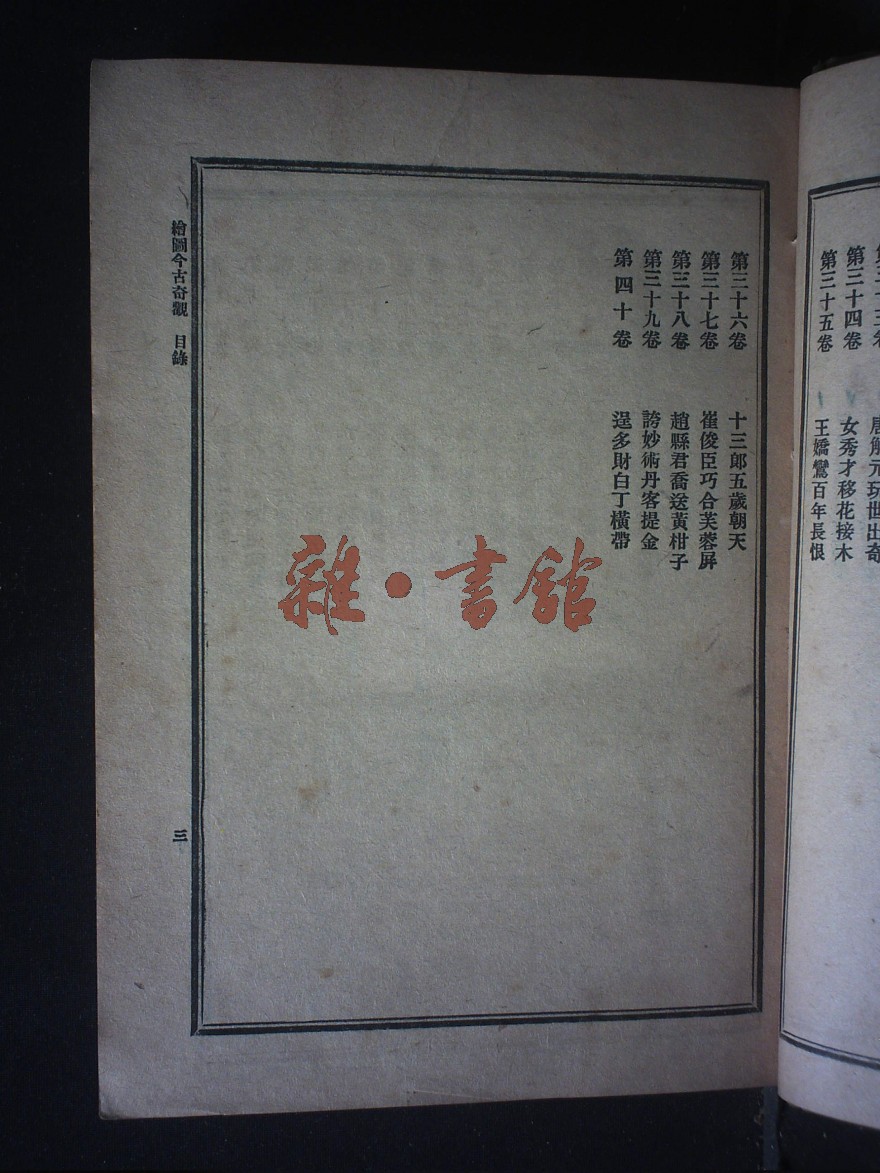 唐解元玩世出奇
第三十四卷 女秀才移花接木
第三十五卷 王嬌鸞百年長恨
第三十六卷 十三郎五歲朝天
第三十七卷 崔俊臣巧合芙蓉屏
第三十八卷 趙縣君喬送黃柑子
第三十九卷 誇妙術丹客提金
第四十卷 逞多財白丁橫帶
繪圖今古奇觀 目錄
三
雜·書館